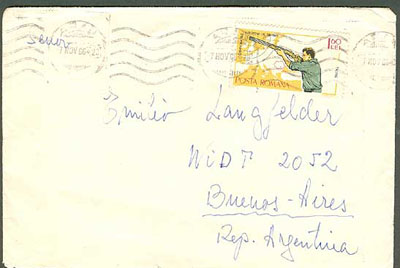 señor
Emilio Langfelder
WIDT 2052
Buenos-Aires
Rep. Argentina
POSTA ROMANA